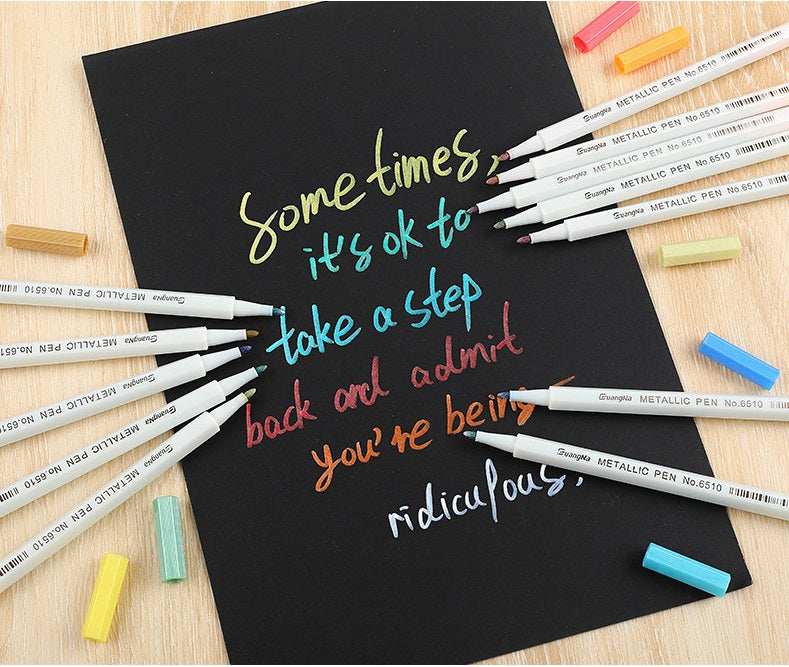 Sometimes,
it's ok to
take a step
back and admit
you're being
ridiculous.
GuangNa METALLIC PEN No.6510
GuangNa METALLIC PEN No.6510
GuangNa METALLIC PEN No.6510
GuangNa METALLIC PEN No.6510
GuangNa METALLIC PEN No.6510
GuangNa METALLIC PEN No.6510
GuangNa METALLIC PEN No.651
GuangNa METALLIC PEN No.6510
GuangNa METALLIC PEN No.6510
GuangNa METALLIC PEN No.6510
GuangNa METALLIC PEN No.6510
GuangNa METALLIC PEN No.6510